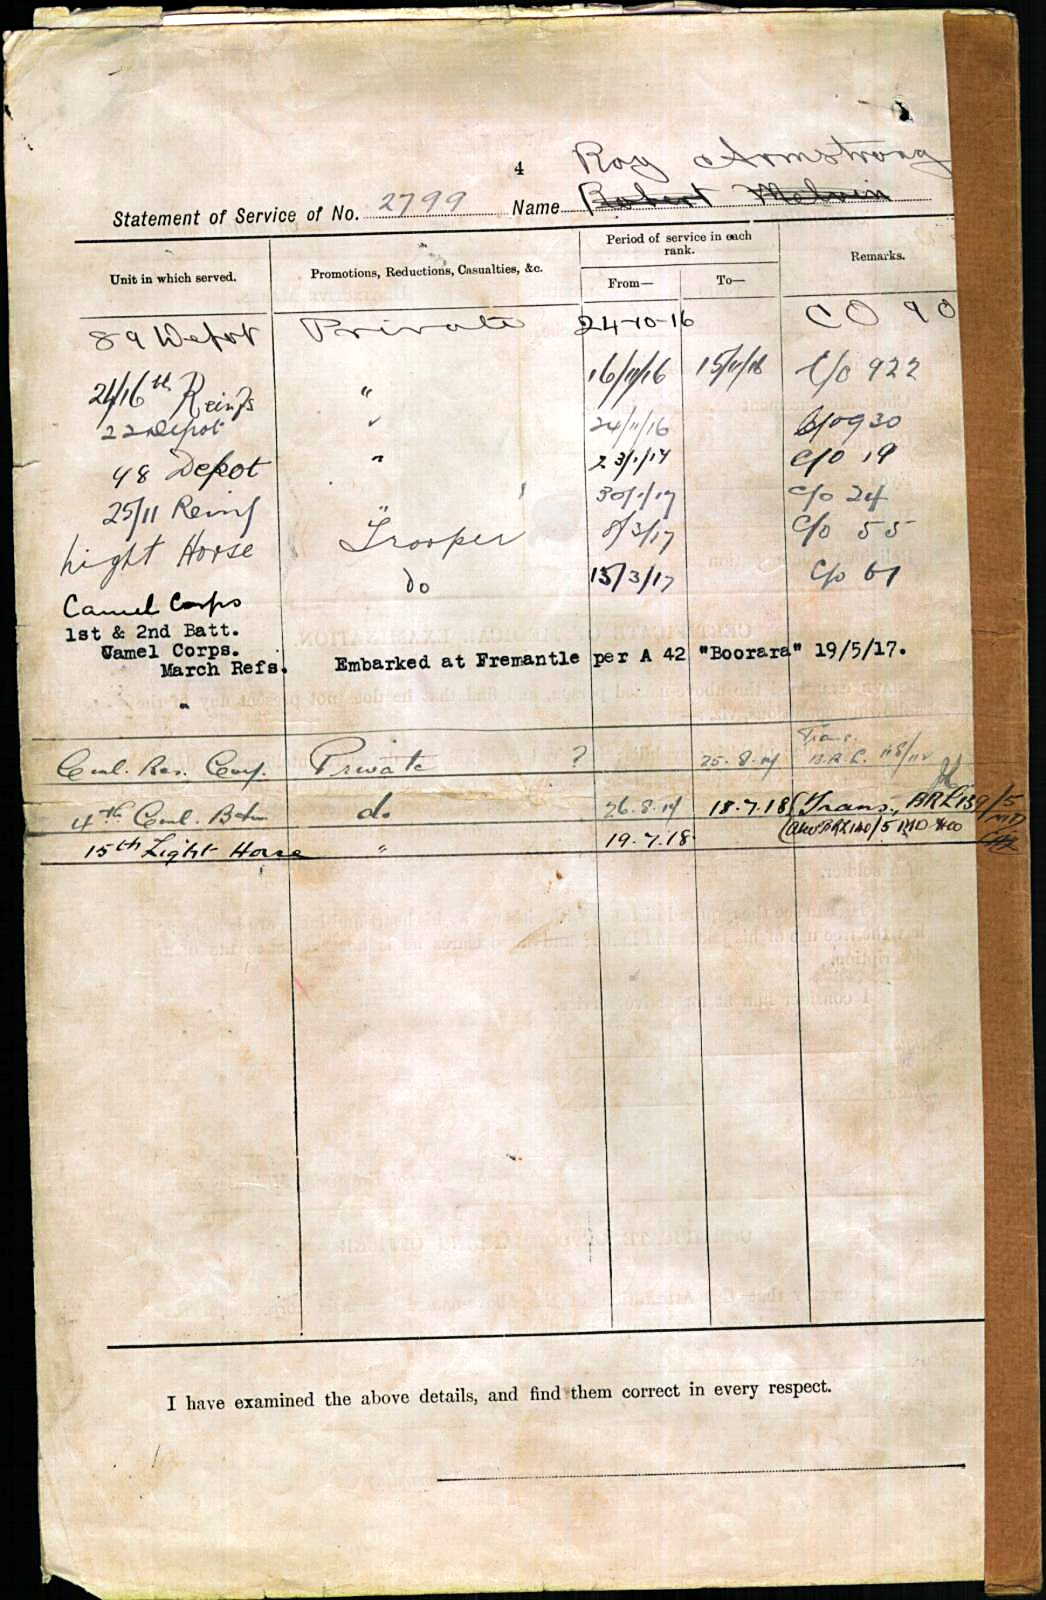 4
Roy Armstrong
Statement of Service of No. 2799 Name Robert Melvin
Unit in which served.
Promotions, Reductions, Casualties, &c.
Period of service in each rank.
From—
To—
Remarks.
89 Depot Private 24-10-16 CO 90
24/16th Reinfs " 16/11/16 15/11/16 C/o 922
22 Depot " 24/11/16 C/o 930
48 Depot " 23/1/17 C/o 19
25/11 Reinf " 30/1/17 C/o 24
Light Horse Trooper 8/3/17 C/o 55
Camel Corps do 15/3/17 C/o 61
1st & 2nd Batt.
Camel Corps.
March Refs. Embarked at Fremantle per A 42 "Boorara" 19/5/17.
"
Caml. Res. Coy. Private ? 25.8.17 Trans. B.R.L.
4th Caml. Batn do. 26.8.17 18.7.18 Trans. BRL 139/5
15th Light Horse " 19.7.18
I have examined the above details, and find them correct in every respect.